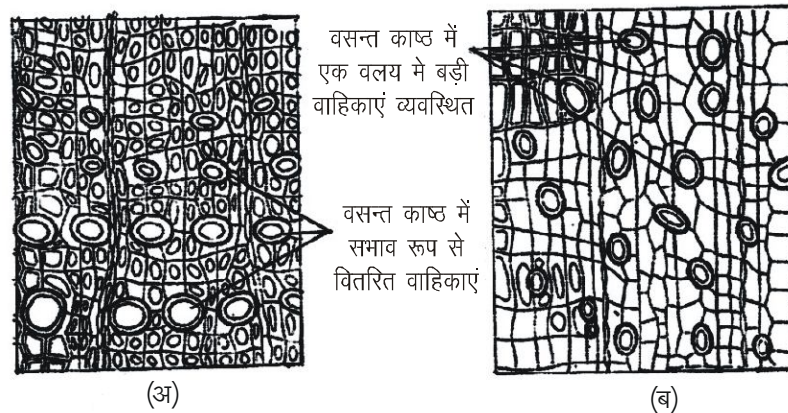 वसन्त काष्ठ में
एक वलय मे बड़ी
वाहिकाएं व्यवस्थित
वसन्त काष्ठ में
सभाव रूप से
वितरित वाहिकाएं
(अ)
(ब)